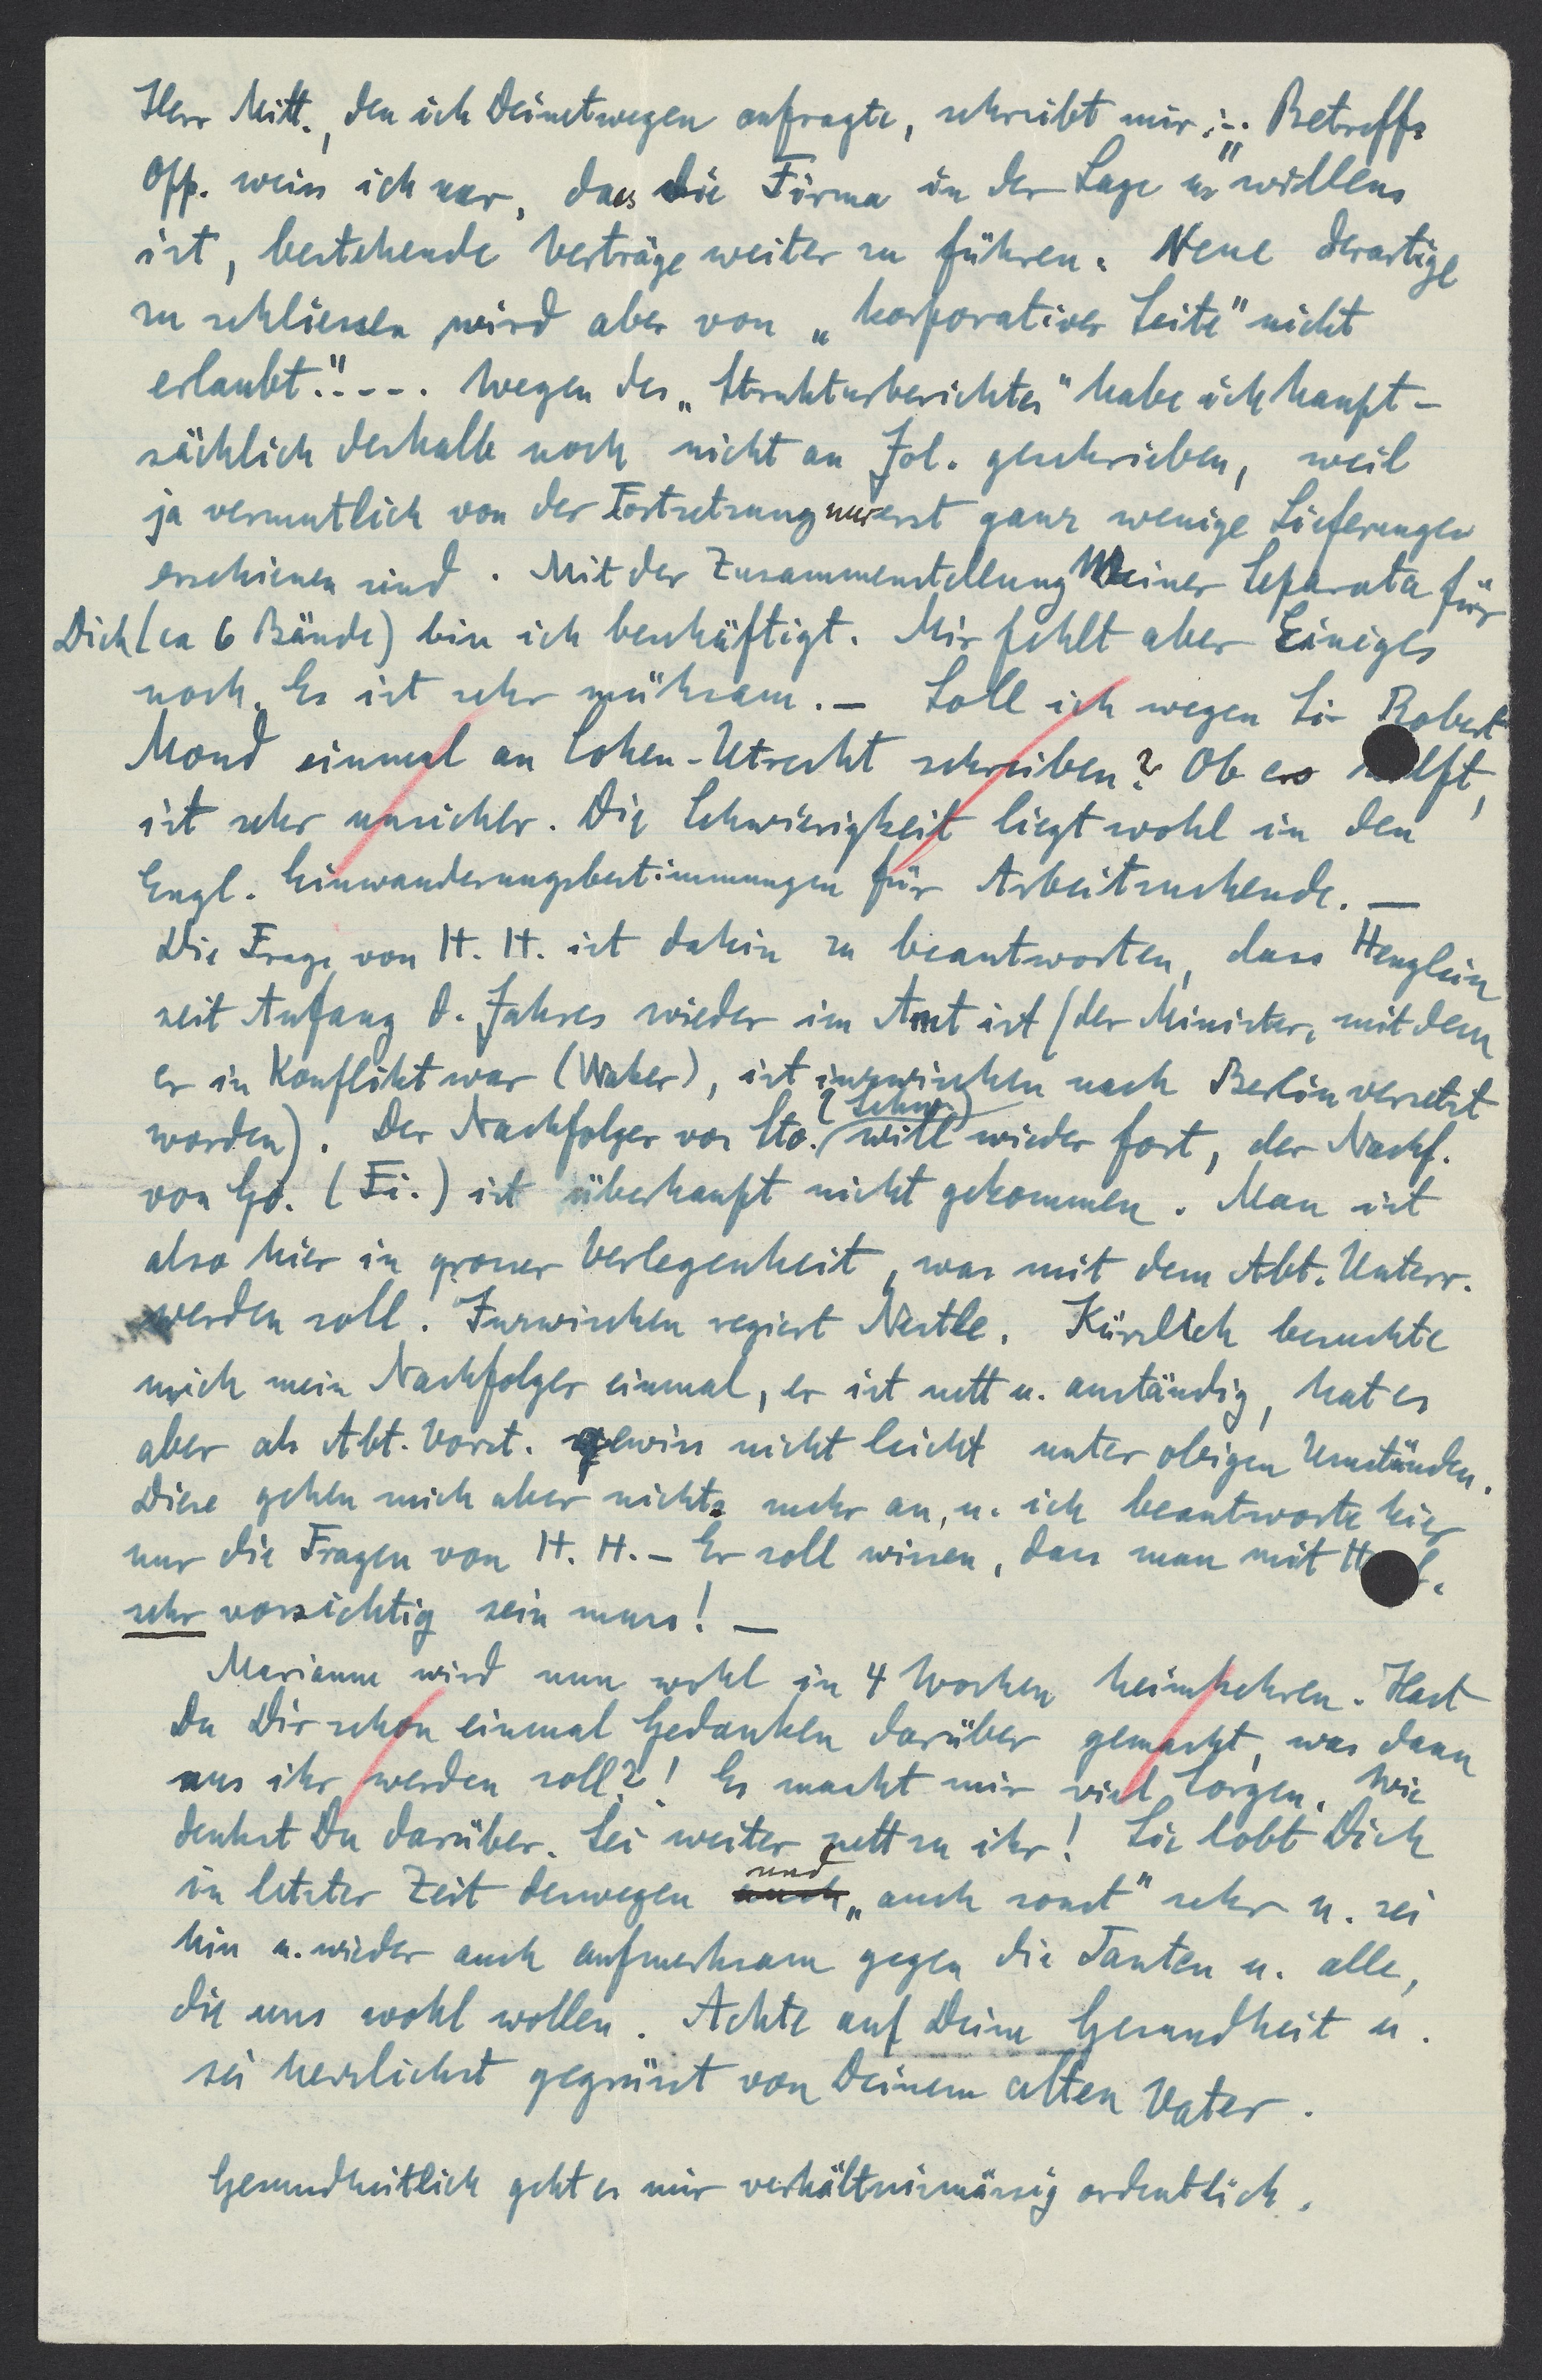 Herr Mitt., den ich Deinetwegen anfragte, schreibt mir: „.. Betreffs
Opp. weiss ich nur, dass die Firma in der Lage u. willens
ist, bestehende Verträge weiter zu führen. Neue derartige
zu schliessen wird aber von „korporativer Seite" nicht
erlaubt." --- . Wegen des „Strukturberichtes" habe ich haupt-
sächlich deshalb noch nicht an Jol. geschrieben, weil
ja vermutlich von der Fortsetzung nur erst ganz wenige Lieferungen
erschienen sind. Mit der Zusammenstellung Meiner Separata für
Dich (ca 6 Bände) bin ich beschäftigt. Mir fehlt aber Einiges
noch. Es ist sehr mühsam. – Soll ich wegen Sir Robert
Mond einmal an Cohen-Utrecht schreiben? Ob es hilft,
ist sehr unsicher. Die Schwierigkeit liegt wohl in den
Engl. Einwanderungsbestimmungen für Arbeitsuchende. —
Die Frage von H. H. ist dahin zu beantworten, dass Henglein
seit Anfang d. Jahres wieder im Amt ist (der Minister, mit dem
er in Konflikt war (Waker), ist inzwischen nach Berlin versetzt
worden). Der Nachfolger von Sto. (Schw.) will wieder fort, der Nachf.
von Go. (Fi.) ist überhaupt nicht gekommen. Man ist
also hier in grosser Verlegenheit, was mit dem Abt. Unterr.
werden soll. Inzwischen regiert Nestle. Kürzlich besuchte
mich mein Nachfolger einmal, er ist nett u. anständig, hat es
aber als Abt. Vorst. gewiss nicht leicht unter obigen Umständen.
Diese gehen mich aber nichts mehr an, u. ich beantworte hier
nur die Fragen von H. H. – Er soll wissen, dass man mit
sehr vorsichtig sein muss! —
Marianne wird nun wohl in 4 Wochen heimkehren. Hast
Du Dir schon einmal Gedanken darüber gemacht, was dann
aus ihr werden soll?! Es macht mir viel Sorgen. Wie
denkst Du darüber. Sei weiter nett zu ihr! Sie lobt Dich
in letzter Zeit deswegen und „auch sonst" sehr u. sei
hin u. wieder auch aufmerksam gegen die Tanten u. alle,
die uns wohl wollen. Achte auf Deine Gesundheit u.
sei herzlichst gegrüsst von Deinem alten Vater.
Gesundheitlich geht es mir verhältnismässig ordentlich.